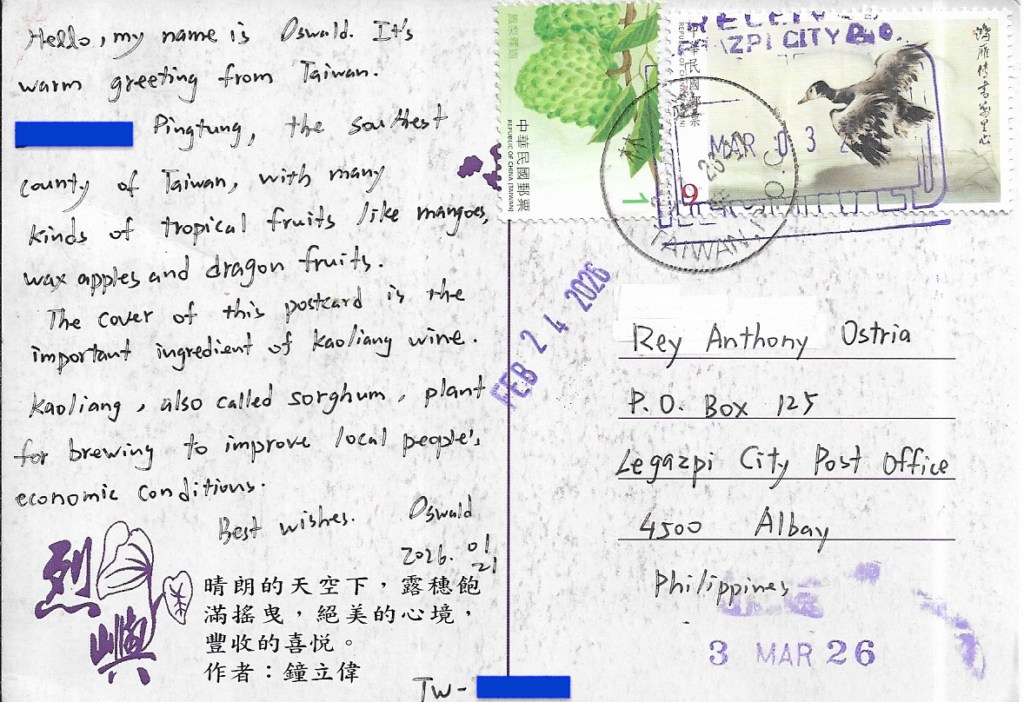 Hello, my name is Oswald. It's
warm greeting from Taiwan.
Pingtung, the southest
county of Taiwan, with many
kinds of tropical fruits like mangoes,
wax apples and dragon fruits.
The cover of this postcard is the
important ingredient of kaoliang wine.
Kaoliang, also called sorghum, plant
for brewing to improve local people's
economic conditions.
Best wishes. Oswald
2026. 01
21
烈嶼
晴朗的天空下，露穗飽
滿搖曳，絕美的心境，
豐收的喜悅。
作者：鐘立偉
TW-
中華民國郵票
REPUBLIC OF CHINA (TAIWAN)
1
中華民國郵票
9
鴻雁傳書萬里心
AZPI CITY P.O.
MAR 03
TAIWAN
FEB 24 2026
Rey Anthony Ostria
P.O. Box 125
Legazpi City Post Office
4500 Albay
Philippines
3 MAR 26